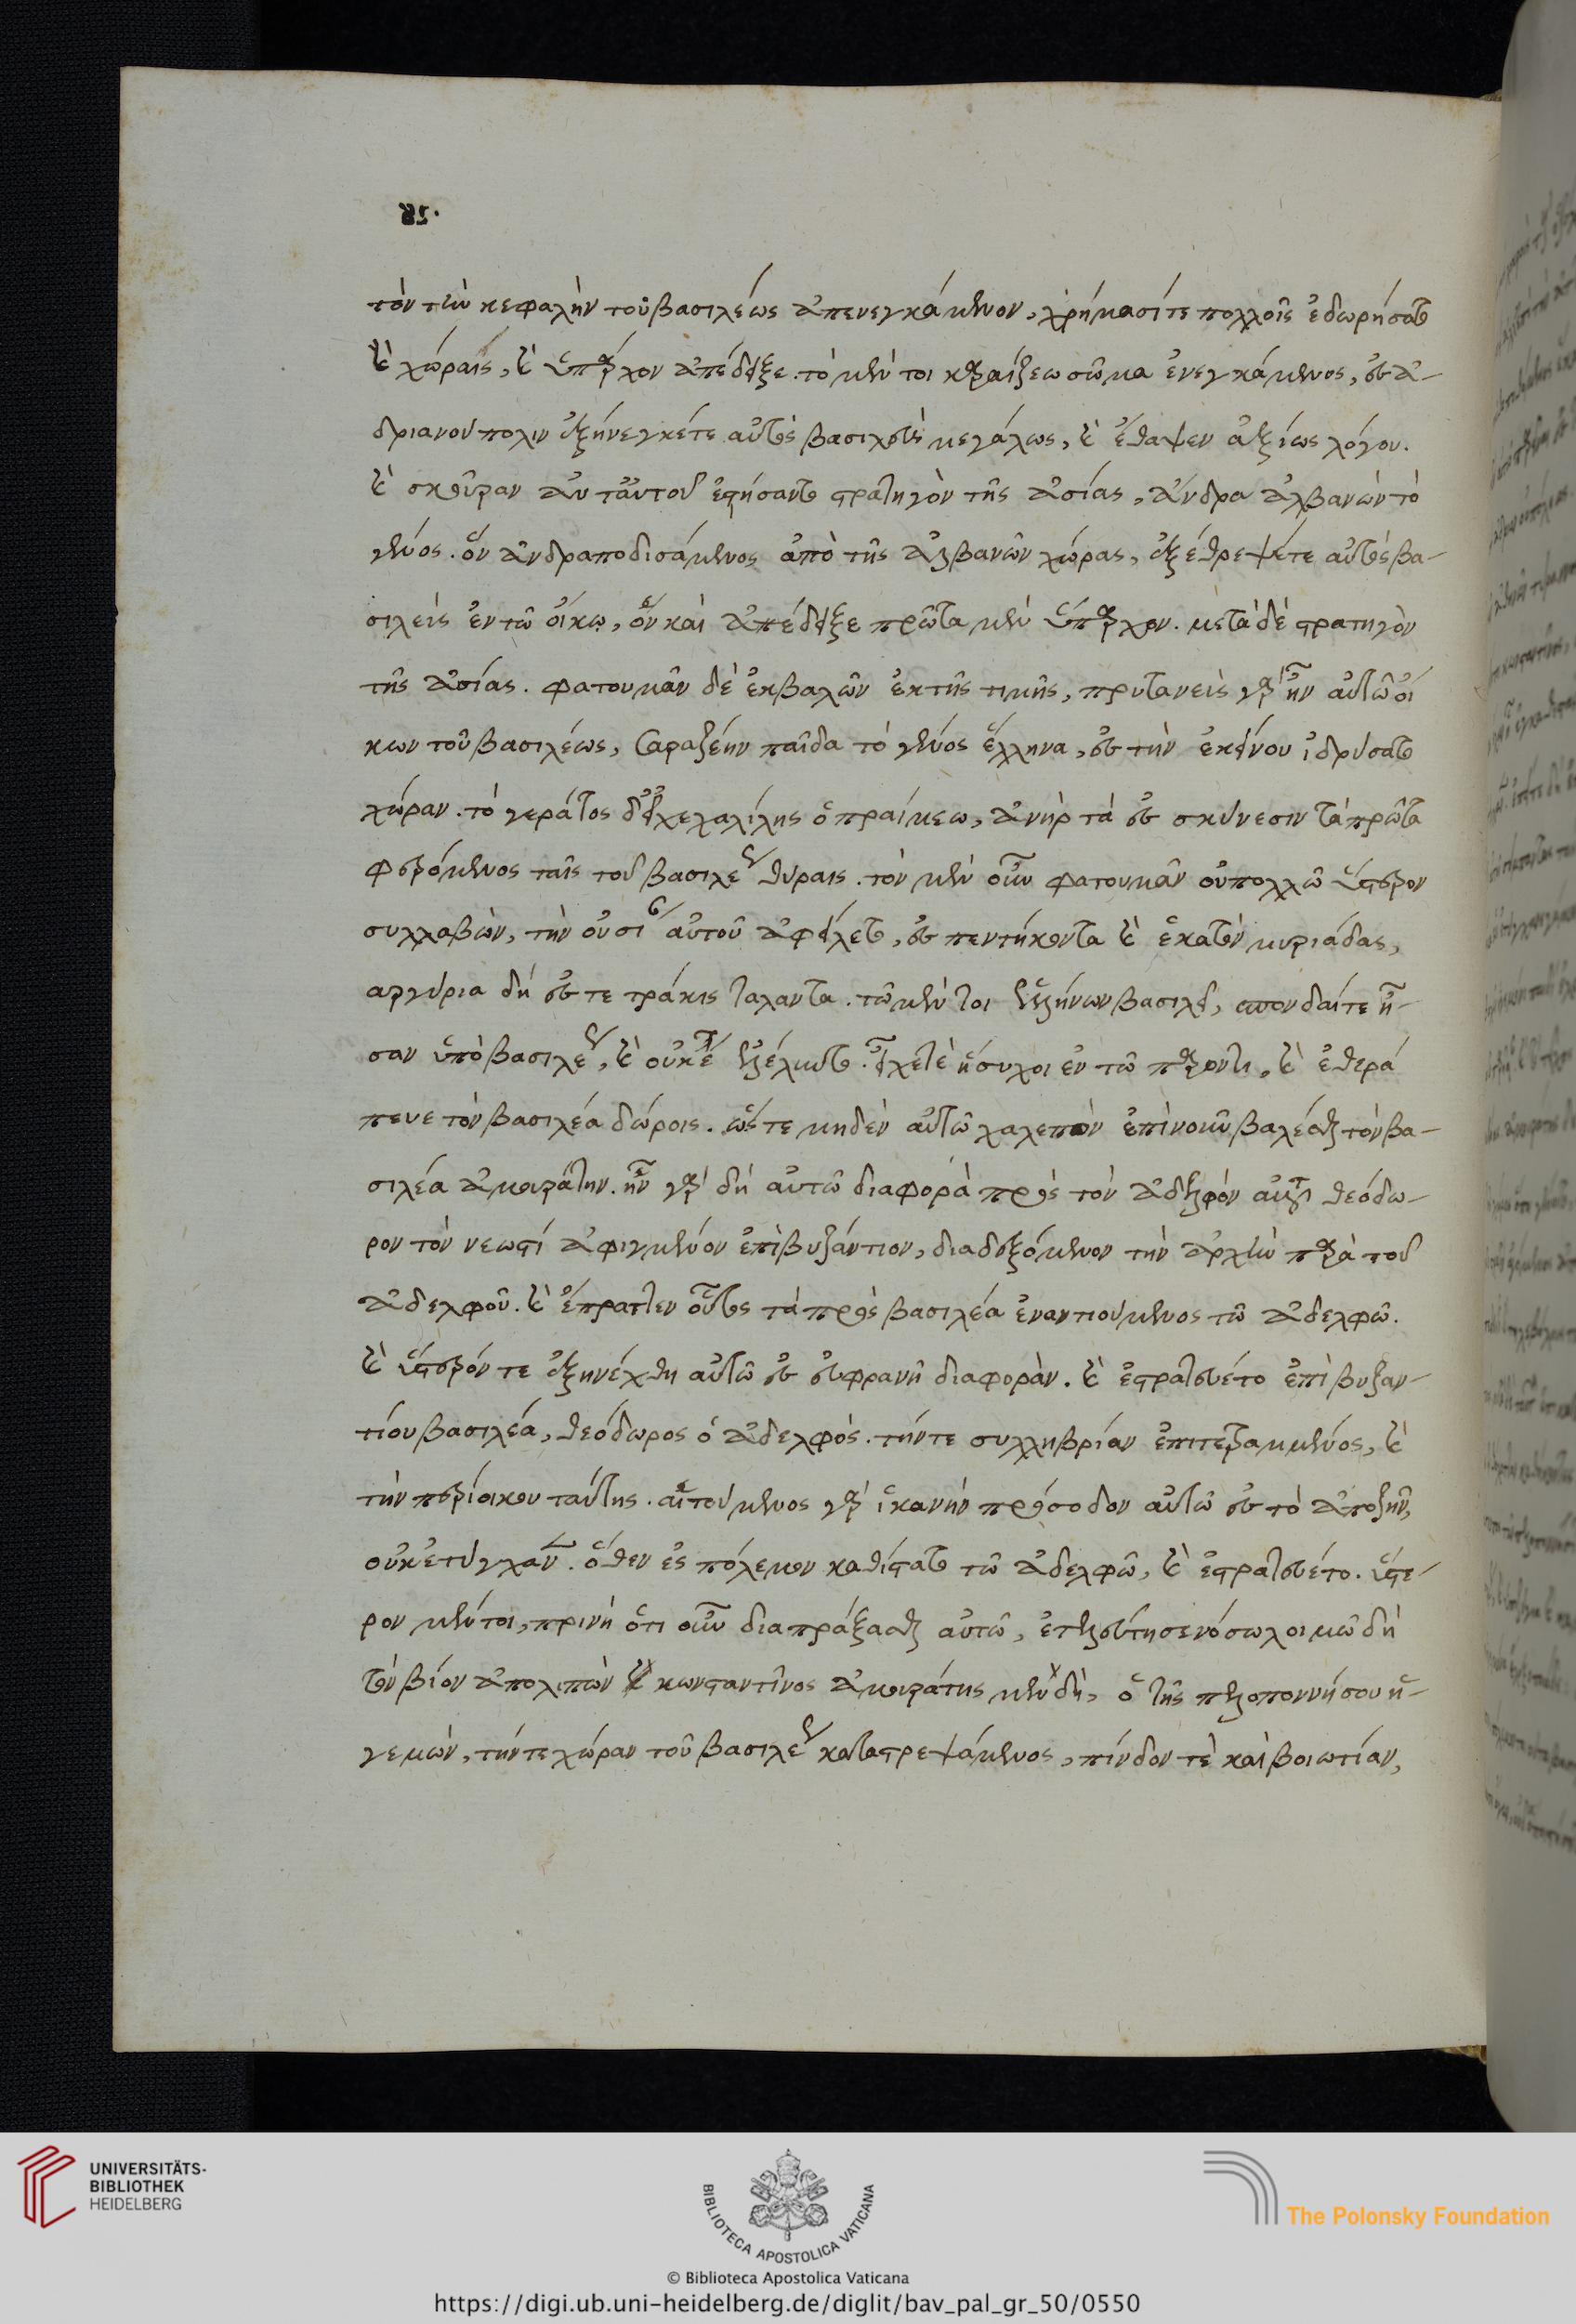 τὸν τὴν κεφαλὴν τοῦ βασιλέως ἀπενεγκάμενον, χρήμασί τε πολλοῖς ἐδωρήσατο
καὶ χώραις, καὶ ὕπαρχον ἀπέδειξε. τὸ μέν τοι σῶμα ἐνεγκάμενος, ἐς ἀ-
δριανούπολιν ἐξήνεγκέ τε αὐτὸς βασιλεὺς μεγάλως, καὶ ἔθαψεν ἀξίως λόγου.
καὶ ἀντ αὐτοῦ ἐστήσαντο στρατηγὸν τῆς ἀσίας, ἄνδρα ἀλβανὸν τὸ
γένος. ὃν ἀνδραποδισάμενος ἀπὸ τῆς ἀλβανῶν χώρας, ἐξέθρεψέ τε αὐτὸς βα-
σιλεὺς ἐν τῶ οἴκω, ὃν καὶ ἀπέδειξε πρῶτα μὲν ὕπαρχον. μετὰ δὲ στρατηγὸν
τῆς ἀσίας. φατουμᾶν δὲ ἐκβαλὼν ἐκ τῆς τιμῆς, πρυτανεὺς γὰρ ἦν αὐτῶ οἴ
κων τοῦ βασιλέως, Σαραξίην παῖδα τὸ γένος ἕλληνα, ἐς τὴν ἐκείνου ἱδρύσατο
χώραν. ἀνὴρ τὰ ἐς σκύνεσιν τὰ πρῶτα
φερόμενος ταῖς τοῦ βασιλέως θύραις. τὸν μὲν οὖν φατουμᾶν οὐ πολλῶ ὕστερον
συλλαβὼν, τὴν οὐσίαν αὐτοῦ ἀφείλετο, ἐς πεντήκοντα καὶ ἑκατὸν μυριάδας,
αργύρια δὴ ἐς τετράκις ταλαντα. τῶ μέν τοι ἑλλήνων βασιλεῖ, σπονδαί τε ἦ-
σαν ὑπὸ βασιλέως, καὶ οὐκέτι εἶχε τὲ ἥσυχοι ἐν τῶ παρόντι, καὶ ἐθερά
πευε τὸν βασιλέα δώροις. ὥς τε μηδὲν αὐτῶ χαλεπὸν ἐπὶ νοῦν βαλέσθαι τὸν βα-
σιλέα ἀμουράτην. ἦν γὰρ δὴ αὐτῶ διαφορὰ πρὸς τὸν ἀδελφὸν αὐτοῦ θεόδω-
ρον τὸν νεωστὶ ἀφιγμένον ἐπὶ βυζάντιον, διαδεξόμενον τὴν ἀρχὴν παρὰ τοῦ
ἀδελφοῦ. καὶ ἔπραττεν οὗτος τὰ πρὸς βασιλέα ἐναντιούμενος τῶ ἀδελφῶ.
καὶ ὕστερόν τε ἐξηνέχθη αὐτῶ ἐς διαφορὰν. καὶ ἐστρατεύετο ἐπὶ βυζαν-
τίου βασιλέα, θεόδωρος ὁ ἀδελφός. τήν τε συλληβρίαν ἐπιτετραμμένος, καὶ
τὴν περίοικον ταύτης. αἰτούμενος γὰρ ἱκανὴν πρόσοδον αὐτῶ ἐς τὸ ἀποζῆν,
οὐκ ἐτύγχανεν. ὅθεν ἐς πόλεμον καθίστατο τῶ ἀδελφῶ, καὶ ἐστρατεύετο. ὕστε-
ρον μέν τοι, πρινὴ ὅτι οὖν διαπράξασθαι αὐτῶ, ἐτελεύτησε νόσω λοιμώδη
τὸν βίον ἀπολιπὼν κωνσταντῖνος μὲν δὴ, ὁ τῆς πελοποννήσου ἡ-
γεμὼν, τήν τε χώραν τοῦ βασιλέως καταστρεψάμενος, πίνδον τὲ καὶ βοιωτίαν,
UNIVERSITÄTS-
BIBLIOTHEK
HEIDELBERG
BIBLIOTECA APOSTOLICA VATICANA
© Biblioteca Apostolica Vaticana
The Polonsky Foundation
https://digi.ub.uni-heidelberg.de/diglit/bav_pal_gr_50/0550